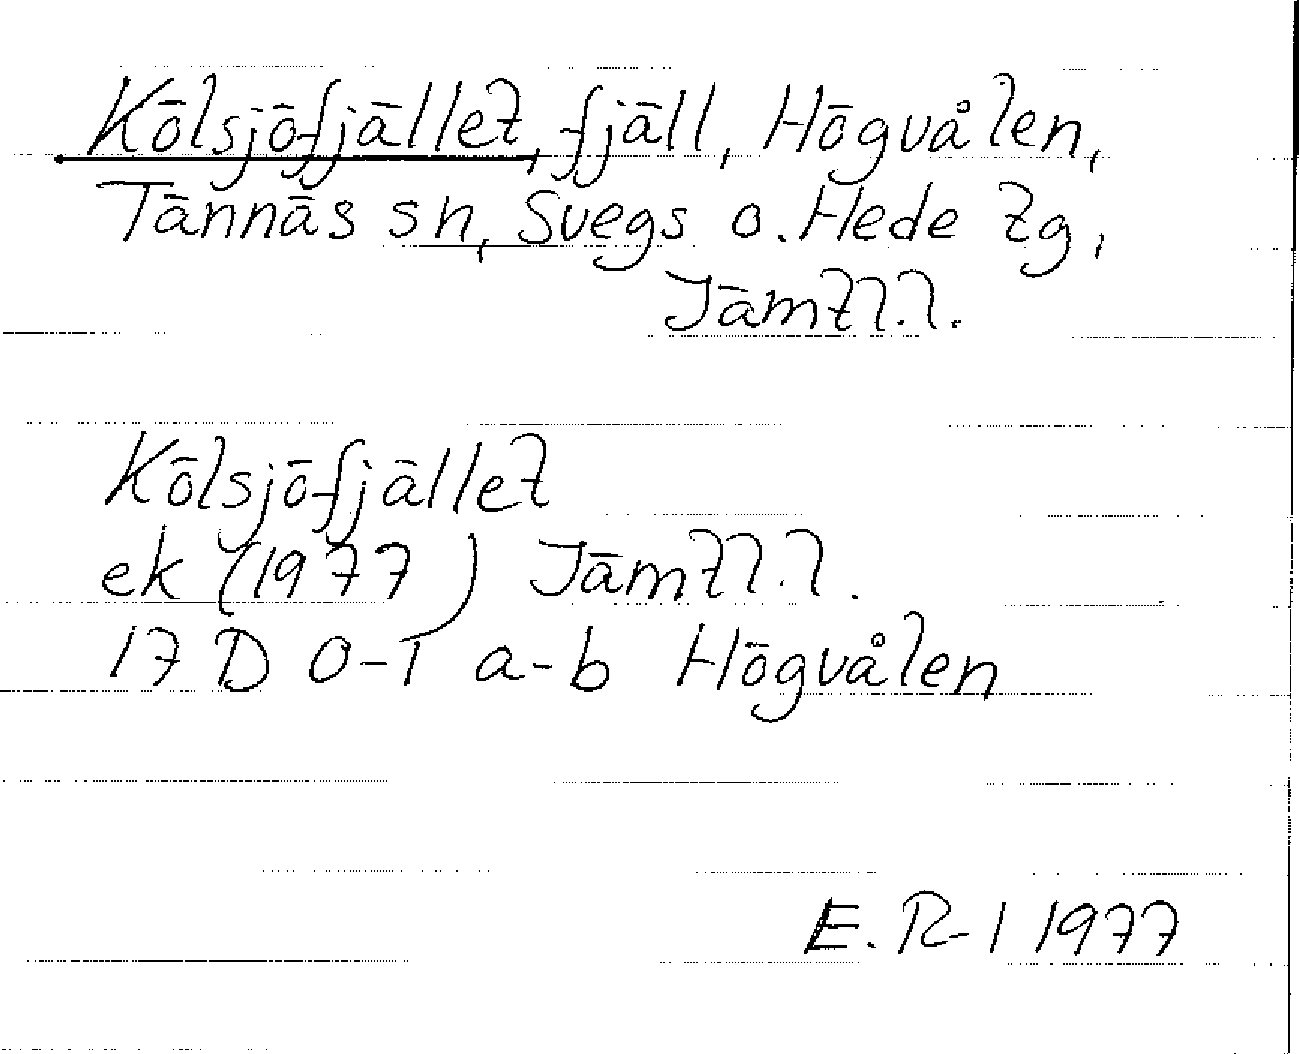 Kölsjöfjället, fjäll, Högvålen,
Tännäs sn, Svegs o. Hede tg,
Jämtl.l.
Kölsjöfjället
ek (1977) Jämtl.l.
17 D 0-1 a-b Högvålen
E. R-l 1977